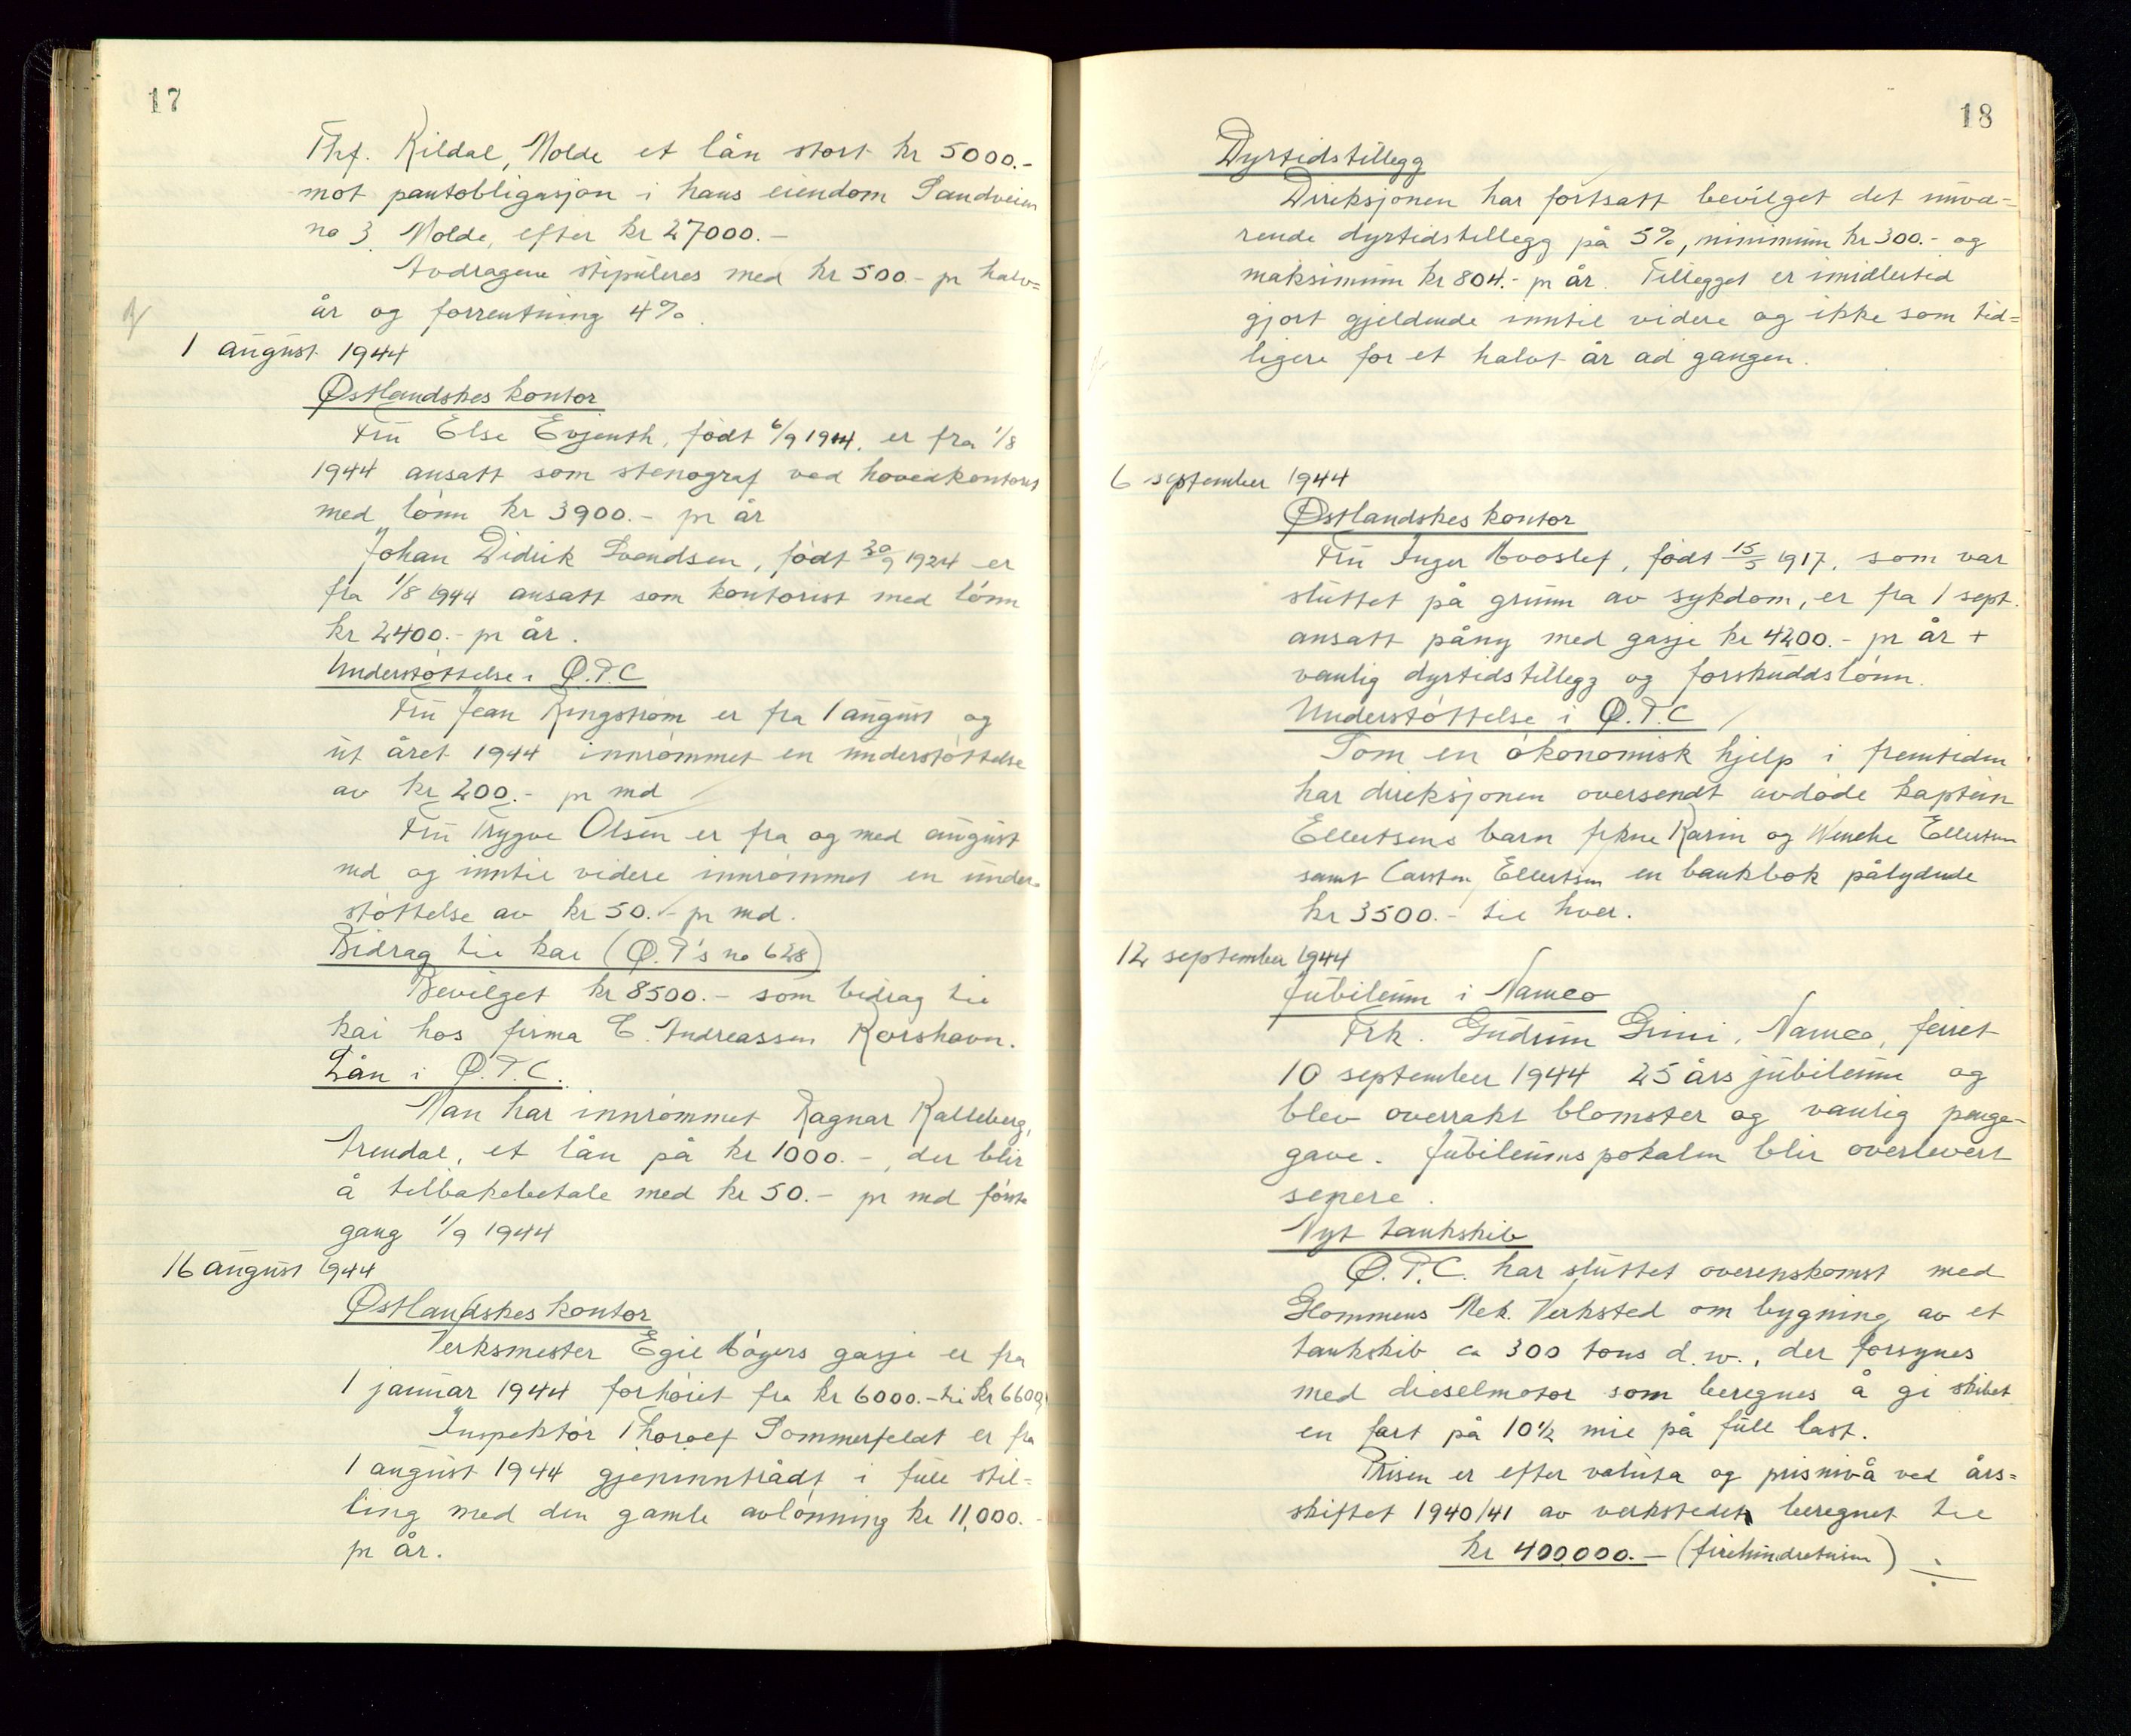 17
Thf. Kildal, Molde et lån stort kr 5000.-
mot pantobligasjon i hans eiendom Sandveien
no 3 Molde, efter kr 27000.-
Avdragene stipuleres med kr 500.- pr halv=
år og forrentning 4%.
1 august 1944
Østlandskes kontor
Fru Else Evjenth, født 6/9 1914, er fra 1/8
1944 ansatt som stenograf ved hovedkontoret
med lønn kr 3900.- pr år
Johan Didrik Svendsen, født 20/9 1924 er
fra 1/8 1944 ansatt som kontorist med lønn
kr 2400.- pr år.
Understøttelse i Ø.P.C
Fru Jean Ringstrøm er fra 1 august og
ut året 1944 innrømmet en understøttelse
av kr 200.- pr md
Fru Trygve Olsen er fra og med august
md og inntil videre innrømmet en under-
støttelse av kr 50.- pr md.
Bidrag til kai (Ø.P's no 628)
Bevilget kr 8500.- som bidrag til
kai hos firma C. Andreassen Korshavn.
Lån i Ø.P.C.
Man har innrømmet Ragnar Kalleberg,
Arendal, et lån på kr 1000.-, der blir
å tilbakebetale med kr 50.- pr md første
gang 1/9 1944
16 august 1944
Østlandskes kontor
Verksmester Egil Høyers gasje er fra
1 januar 1944 forhøiet fra kr 6000.- til kr 6600.
Inspektør Thoralf Sommerfeldt er fra
1 august 1944 gjeninntrådt i full stil=
ling med den gamle avlønning kr 11,000.-
pr år.
18
Dyrtidstillegg
Direksjonen har fortsatt bevilget det nuvæ=
rende dyrtidstillegg på 5%, minimum kr 300.- og
maksimum kr 804.- pr år. Tillegget er imidlertid
gjort gjeldende inntil videre og ikke som tid=
ligere for et halvt år ad gangen.
6 september 1944
Østlandskes kontor
Fru Inger Hvoslef, født 15/5 1917, som var
sluttet på grunn av sykdom, er fra 1 sept.
ansatt påny med gasje kr 4200.- pr år +
vanlig dyrtidstillegg og forskuddslønn.
Understøttelse i Ø.P.C
Som en økonomisk hjelp i fremtiden
har direksjonen oversendt avdøde kaptein
Ellertsens barn frkne Karin og Wenche Ellertsen
samt Carsten Ellertsen en bankbok pålydende
kr 3500.- til hver.
12 september 1944
Jubileum i Nameo
Frk. Gudrun Grini, Nameo, feiret
10 september 1944 25 års jubileum og
blev overrakt blomster og vanlig penge-
gave. Jubileumspokalen blir overlevert
senere.
Nyt tankskib
Ø.P.C. har sluttet overenskomst med
Glommens Mek. Verksted om bygning av et
tankskib ca 300 tons d.w., der forsynes
med dieselmotor som beregnes å gi skibet
en fart på 10½ mil på full last.
Prisen er efter valuta og prisnivå ved års=
skiftet 1940/41 av verkstedet beregnet til
kr 400.000.- (firehundretusen)